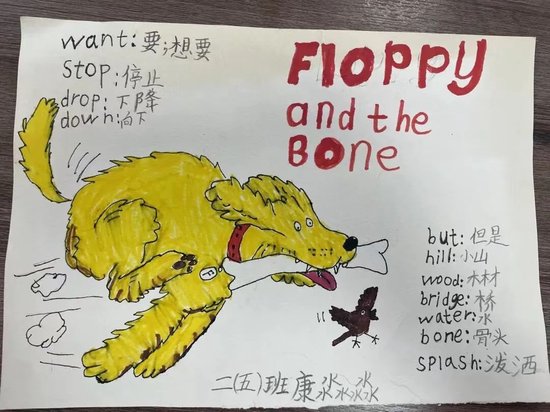 want:要;想要
stop:停止
drop:下降
down:向下
Floppy
and the
Bone
but:但是
hill:小山
wood:木材
bridge:桥
water:水
bone:骨头
splash:泼洒
二(五)班康淼淼